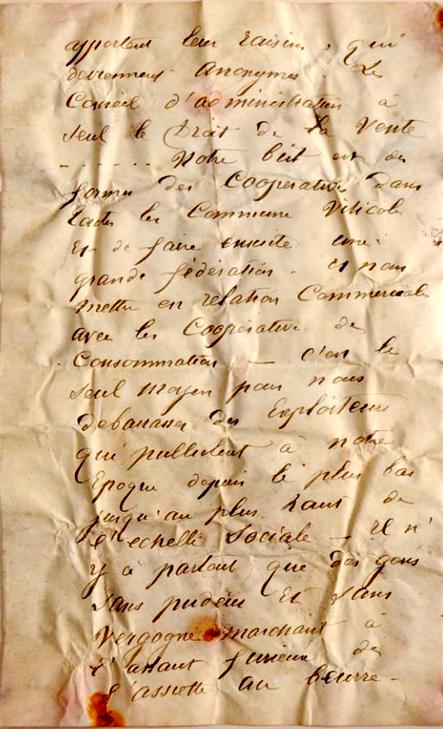 apportent leur raisins, qui
deviennent anonymes. Le
Conseil d'administration à
seul le Droit de la Vente
- ..... Notre but est de
former des Coopérative dans
toutes les Commune Viticole
et de faire ensuite une
grande fédération. et nous
mettre en relation Commerciale
avec les Coopérative de
Consommation — c'est le
seul moyen pour nous
debarasser des Exploiteurs
qui pullulent à notre
Epoque depuis le plus bas
jusqu'au plus haut de
l'echelle Sociale — il n'
y à partout que des gens
sans pudeur Et sans
Vergogne marchant à
l'assaut furieux de
l'assiette au beurre -